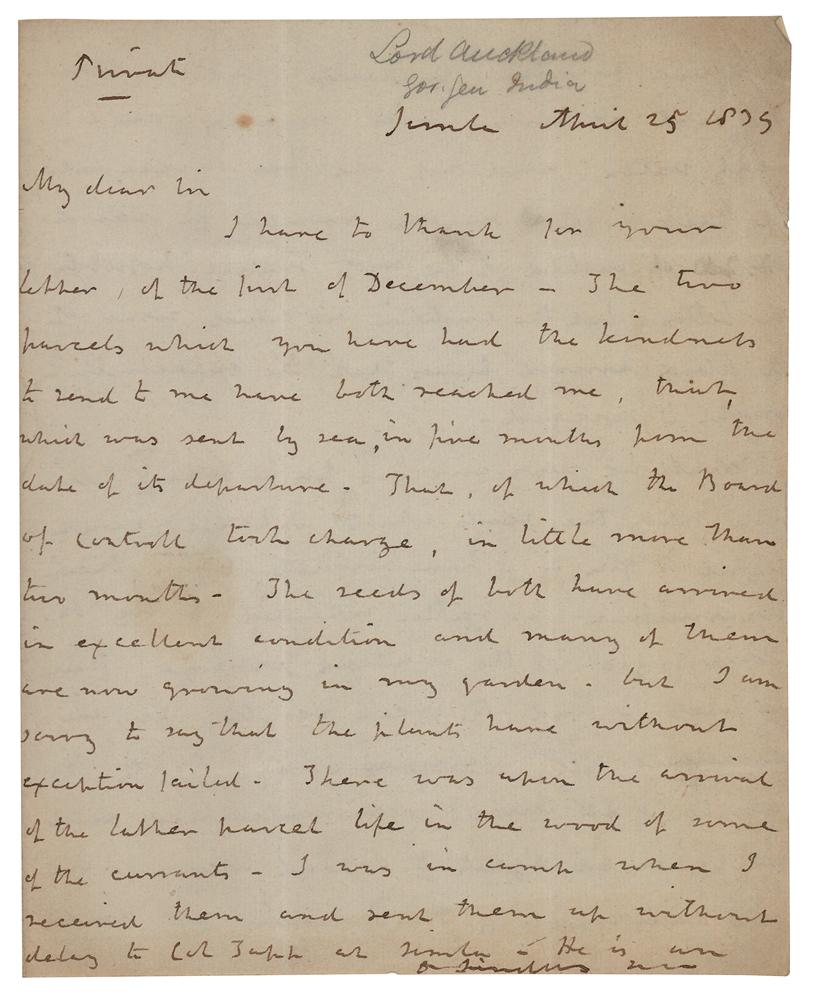 Private
Lord Auckland
Gov. Gen India
Simla April 25 1839
My dear Sir
I have to thank for your
letter, of the first of December - The two
parcels which you have had the kindness
to send to me have both reached me, that,
which was sent by sea, in five months from the
date of its departure - That, of which the Board
of Controll took charge, in little more than
two months - The seeds of both have arrived
in excellent condition and many of them
are now growing in my garden - but I am
sorry to say that the plants have without
exception failed - There was upon the arrival
of the latter parcel life in the wood of some
of the currants - I was in camp when I
received them and sent them up without
delay to Col Tapp at Simla - He is an